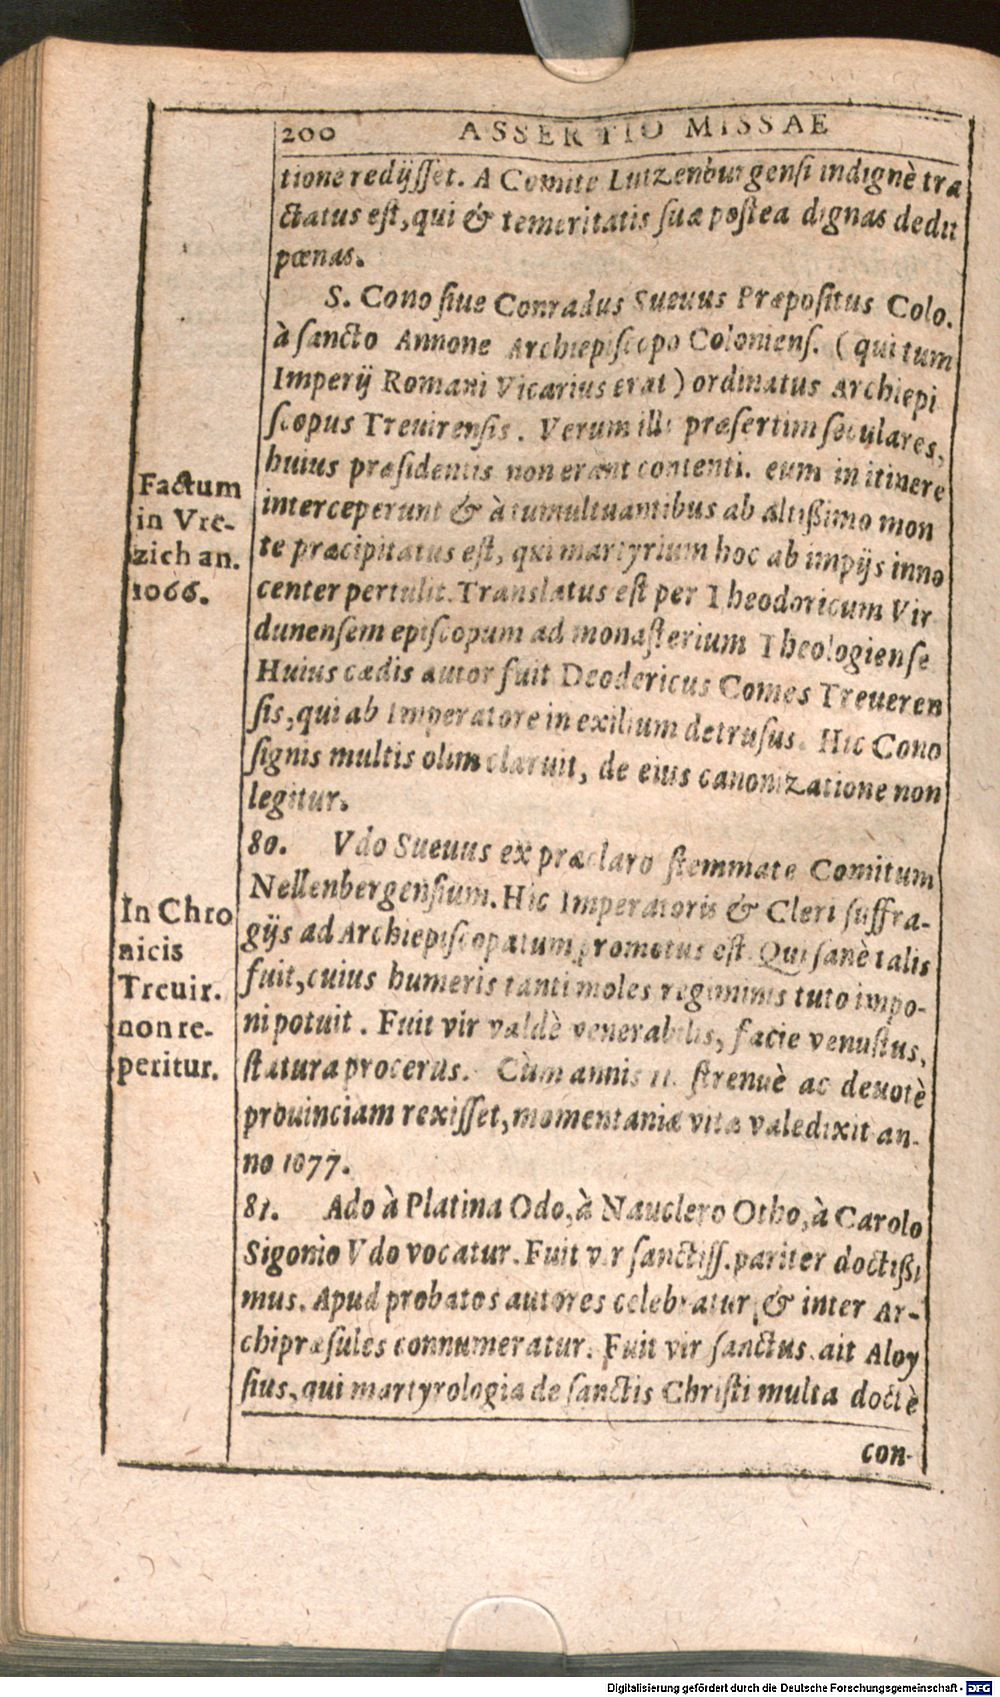 200 ASSERTIO MISSAE
tione redijsset. A Comite Lutzenburgensi indignè tra
ctatus est, qui & temeritatis suæ postea dignas dedit
pœnas.
S. Cono siue Conradus Sueuus Præpositus Colo.
à sancto Annone Archiepiscopo Coloniens. (qui tum
Imperij Romani Vicarius erat) ordinatus Archiepi
scopus Treuirensis. Verum illi præsertim seculares,
huius præsidentis non erant contenti. eum in itinere
interceperunt & à tumultuantibus ab altißimo mon
te præcipitatus est, qui martyrium hoc ab impijs inno
center pertulit. Translatus est per Theodoricum Vir
dunensem episcopum ad monasterium Theologiense
Huius cædis autor fuit Deodericus Comes Treueren
sis, qui ab Imperatore in exilium detrusus. Hic Cono
signis multis olim claruit, de eius canonizatione non
legitur.
Factum
in Vre-
zich an.
1066.
80. Vdo Sueuus ex præclaro stemmate Comitum
Nellenbergensium. Hic Imperatoris & Cleri suffra-
gijs ad Archiepiscopatum promotus est. Qui sanè talis
fuit, cuius humeris tanti moles regiminis tuto impo-
ni potuit. Fuit vir valdè venerabilis, facie venustus,
statura procerus. Cùm annis 11. strenuè ac deuotè
prouinciam rexisset, momentaniæ vitæ valedixit an-
no 1077.
In Chro
nicis
Treuir.
non re-
peritur.
81. Ado à Platina Odo, à Nauclero Otho, à Carolo
Sigonio Vdo vocatur. Fuit vir sanctiss. pariter doctißi
mus. Apud probatos autores celebratur, & inter Ar-
chipræsules connumeratur. Fuit vir sanctus. ait Aloy
sius, qui martyrologia de sanctis Christi multa doctè
con-
Digitalisierung gefördert durch die Deutsche Forschungsgemeinschaft - DFG